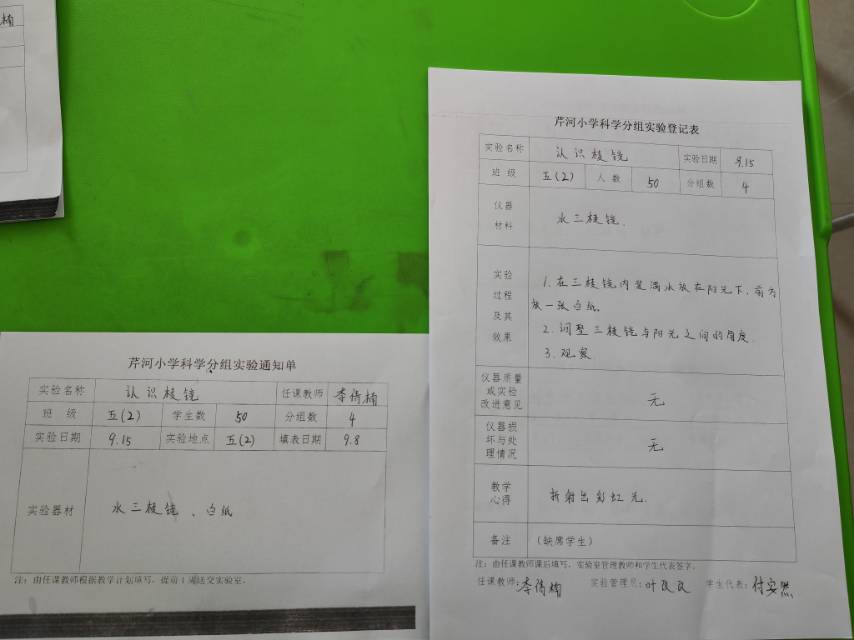 楠
芹河小学科学分组实验通知单
实验名称 认识棱镜 任课教师 李倩楠
班级 五(2) 学生数 50 分组数 4
实验日期 9.15 实验地点 五(2) 填表日期 9.8
实验器材 水三棱镜、白纸
注:由任课教师根据教学计划填写,提前1周送交实验室。
芹河小学科学分组实验登记表
实验名称 认识棱镜 实验日期 9.15
班级 五(2) 人数 50 分组数 4
仪器
材料
水三棱镜.
实验
过程
及其
效果
1.在三棱镜内装满水放在阳光下.前方
放一张白纸.
2.调整三棱镜与阳光之间的角度.
3.观察
仪器质量
或实验
改进意见
无
仪器损
坏与处
理情况
无
教学
心得
折射出彩虹光.
备注 (缺席学生)
注:由任课教师课后填写,实验室管理教师和学生代表签字。
任课教师:李倩楠 实验管理员:叶 学生代表:付安然